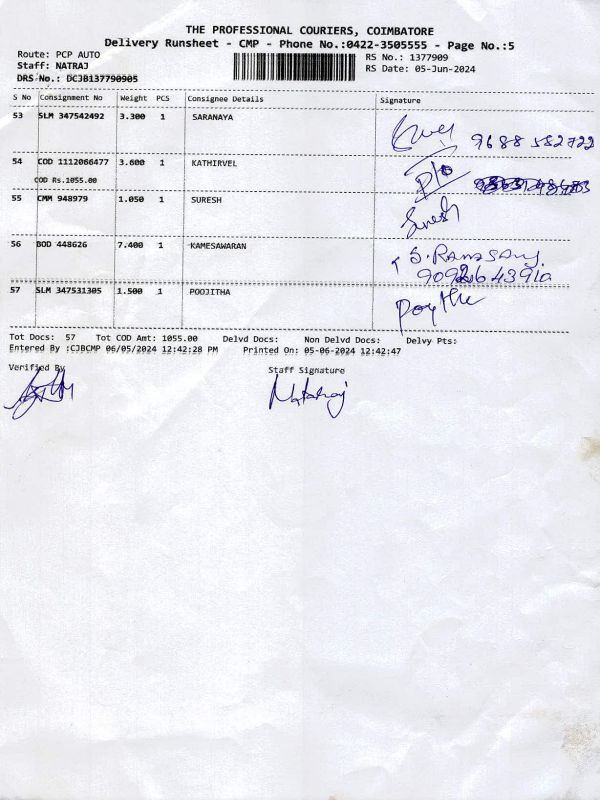 THE PROFESSIONAL COURIERS, COIMBATORE
Delivery Runsheet - CMP - Phone No.:0422-3505555 - Page No.:5
Route: PCP AUTO RS No.: 1377909
Staff: NATRAJ RS Date: 05-Jun-2024
DRS No.: DCJB137790905
S No Consignment No Weight PCS Consignee Details Signature
53 SLM 347542492 3.300 1 SARANAYA 9688 582722
54 COD 1112066477 3.600 1 KATHIRVEL
COD Rs.1055.00
55 CMM 948979 1.050 1 SURESH Suresh
56 BOD 448626 7.400 1 KAMESAWARAN
57 SLM 347531305 1.500 1 POOJITHA
Tot Docs: 57 Tot COD Amt: 1055.00 Delvd Docs: Non Delvd Docs: Delvy Pts:
Entered By :CJBCMP 06/05/2024 12:42:28 PM Printed On: 05-06-2024 12:42:47
Verified By Staff Signature
Nataraj